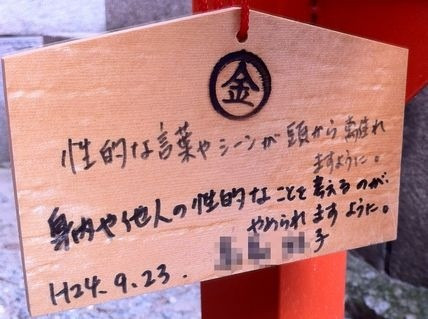 金
性的な言葉やシーンが頭から離れ
ますように。
身内や他人の性的なことを考えるのが、
やめられますように。
子
H24.9.23.